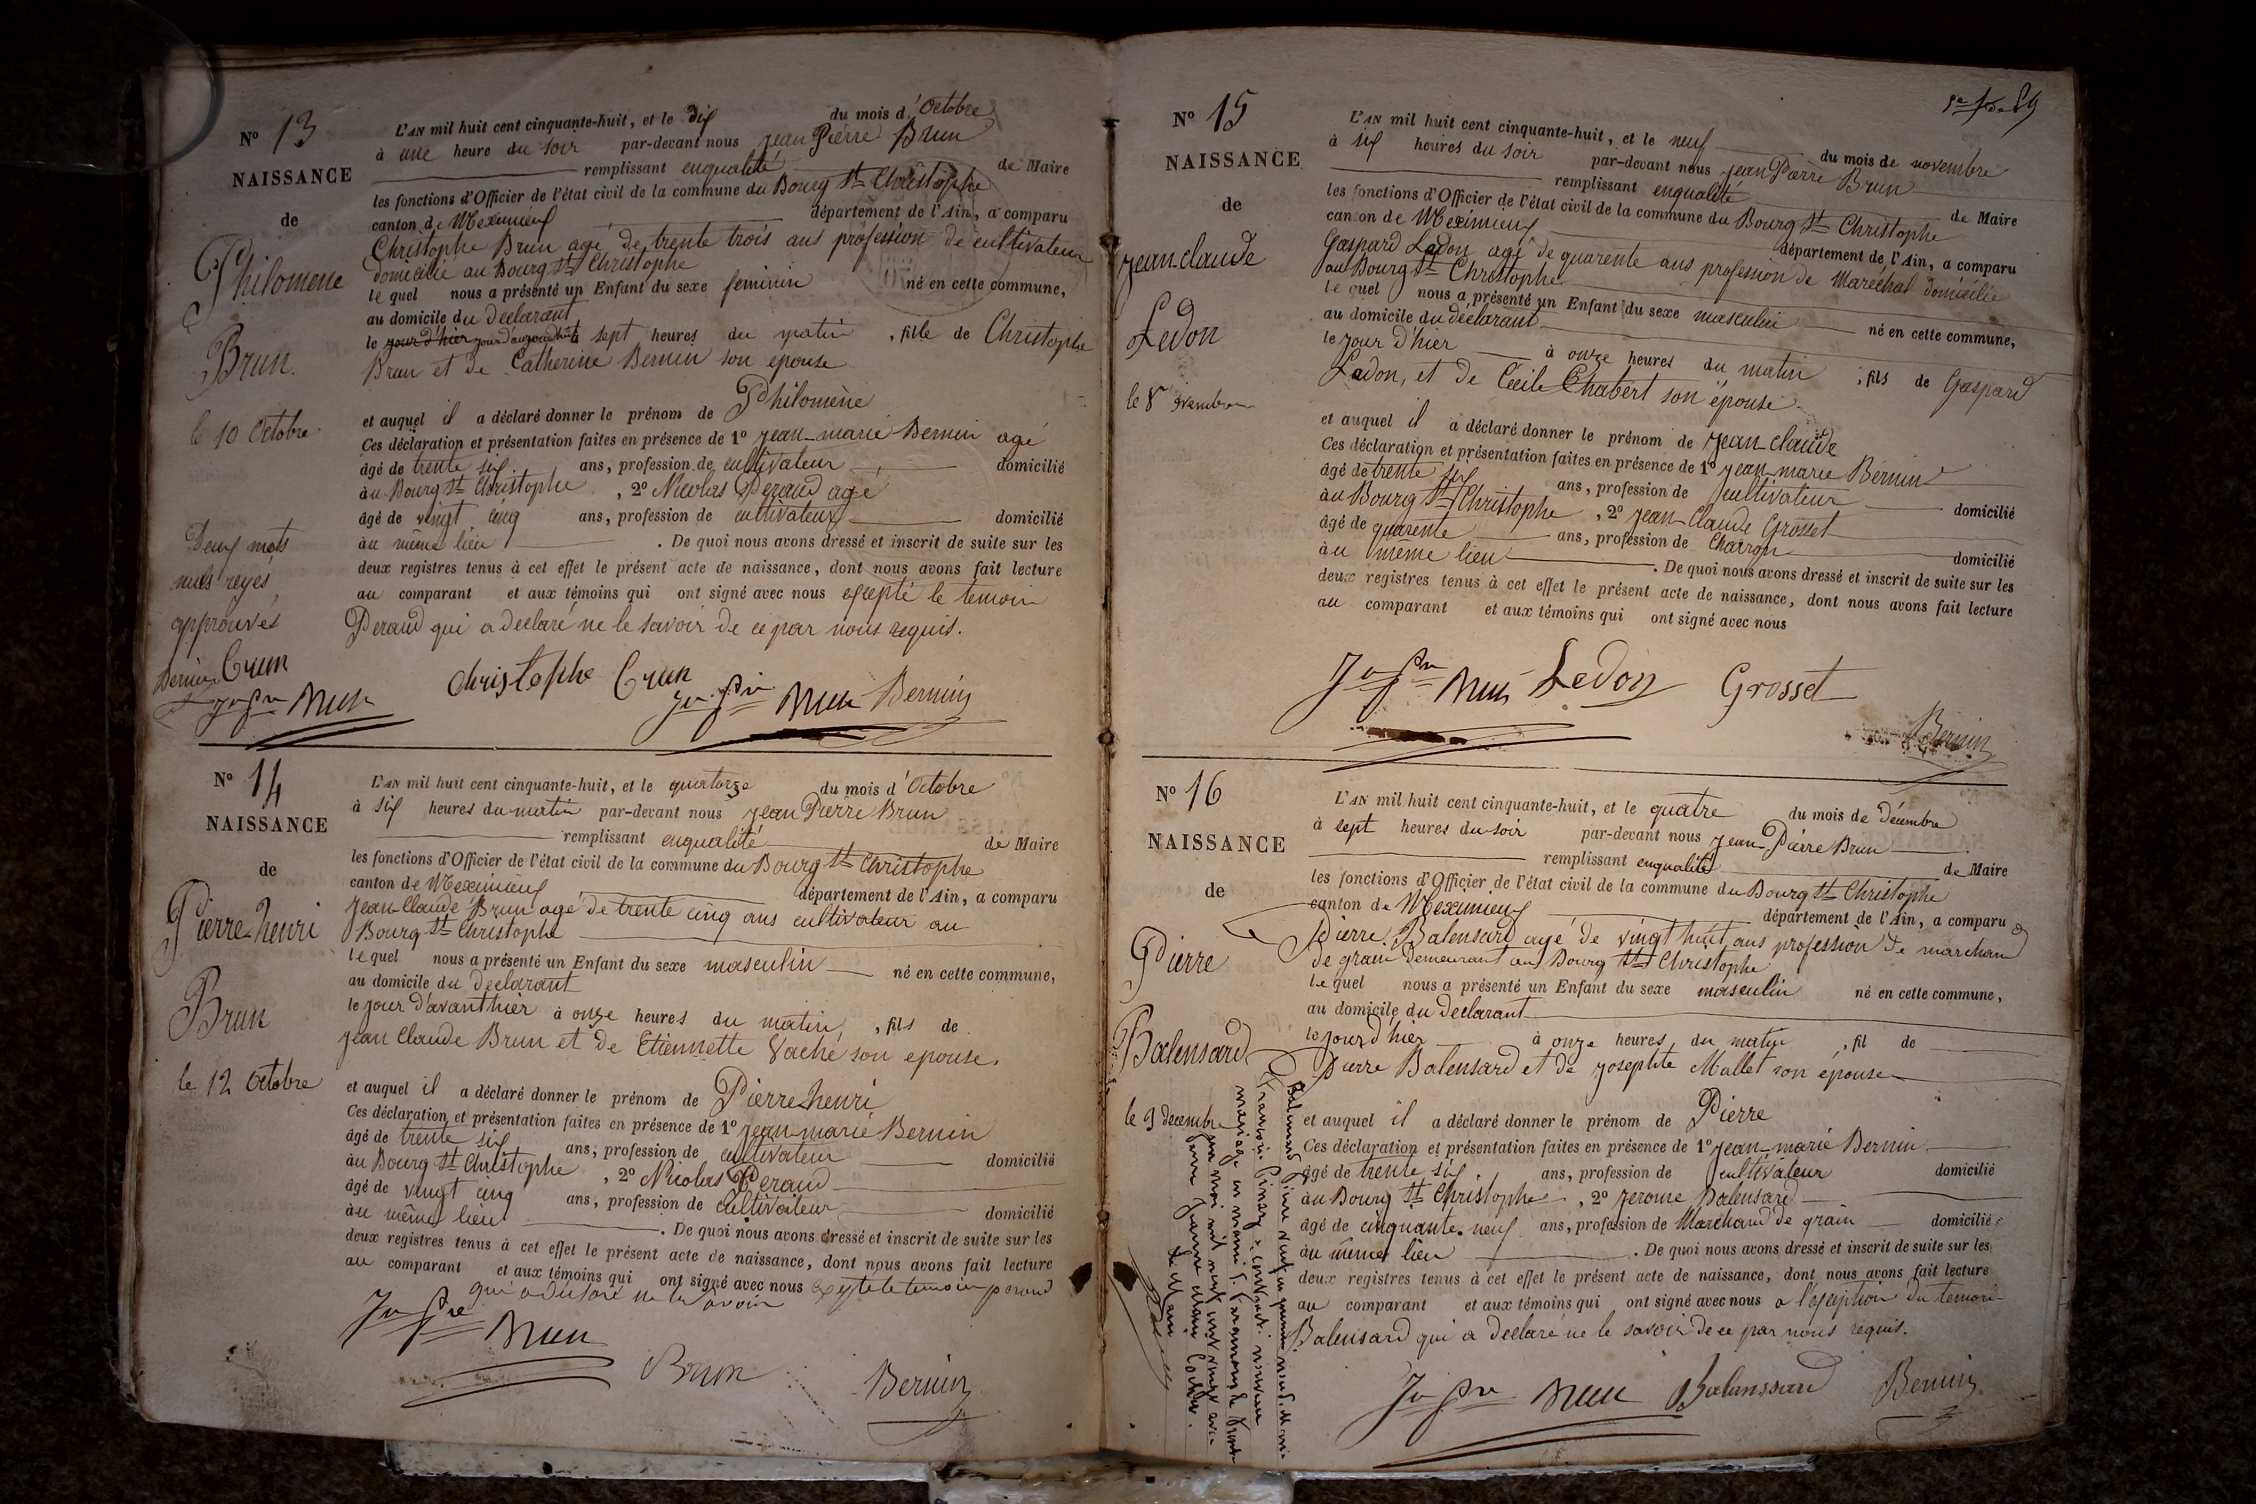 Nº 13
NAISSANCE
de
Philomène
Brun.
le 10 Octobre
Deux mots
nuls rayés
approuvés
Bernin Brun
Jn Pre Brun
L'AN mil huit cent cinquante-huit, et le dix du mois d'Octobre
à une heure du soir par-devant nous Jean Pierre Brun
remplissant enqualité de Maire
les fonctions d'Officier de l'état civil de la commune du Bourg St Christophe
canton de Meximieux département de l'Ain, a comparu
Christophe Brun agé de trente trois ans profession de cultivateur
domicilié au Bourg St Christophe
le quel nous a présenté un Enfant du sexe feminin né en cette commune,
au domicile du déclarant
le jour d'hier jour d'aujourd'hui à sept heures du matin, fille de Christophe
Brun et de Catherine Bernin son épouse
et auquel il a déclaré donner le prénom de Philomène
Ces déclaration et présentation faites en présence de 1º Jean-marie Bernin agé
âgé de trente six ans, profession de cultivateur domicilié
au Bourg St Christophe, 2º Nicolas Peraud agé
âgé de vingt cinq ans, profession de cultivateur domicilié
au même lieu. De quoi nous avons dressé et inscrit de suite sur les
deux registres tenus à cet effet le présent acte de naissance, dont nous avons fait lecture
au comparant et aux témoins qui ont signé avec nous excepté le temoin
Peraud qui a declaré ne le savoir de ce par nous requis.
Christophe Brun Jn Pre Brun Bernin
Nº 14
NAISSANCE
de
Pierre-henri
Brun
le 12 Octobre
L'AN mil huit cent cinquante-huit, et le quatorze du mois d'Octobre
à six heures du matin par-devant nous Jean Pierre Brun
remplissant enqualité de Maire
les fonctions d'Officier de l'état civil de la commune du Bourg St Christophe
canton de Meximieux département de l'Ain, a comparu
Jean-Claude Brun agé de trente cinq ans cultivateur au
Bourg St Christophe
le quel nous a présenté un Enfant du sexe masculin né en cette commune,
au domicile du declarant
le jour d'avanthier à onze heures du matin, fils de
Jean Claude Brun et de Etiennette Vaché son epouse.
et auquel il a déclaré donner le prénom de Pierre-henri
Ces déclaration et présentation faites en présence de 1º Jean-marie Bernin
âgé de trente six ans, profession de cultivateur domicilié
au Bourg St Christophe, 2º Nicolas Peraud
âgé de vingt cinq ans, profession de cultivateur domicilié
au même lieu. De quoi nous avons dressé et inscrit de suite sur les
deux registres tenus à cet effet le présent acte de naissance, dont nous avons fait lecture
au comparant et aux témoins qui ont signé avec nous excepte le temoin peraud
qui a declaré ne le savoir
Jn Pre Brun
Brun Bernin
Nº 15
NAISSANCE
de
Jean claude
Ledon
le 8 9vembre
L'AN mil huit cent cinquante-huit, et le neuf du mois de novembre
à six heures du soir par-devant nous Jean Pierre Brun
remplissant enqualité de Maire
les fonctions d'Officier de l'état civil de la commune du Bourg St Christophe
canton de Meximieux département de l'Ain, a comparu
Gaspard Ledon agé de quarente ans profession de Maréchal domicilié
au Bourg St Christophe
le quel nous a présenté un Enfant du sexe masculin né en cette commune,
au domicile du déclarant
le jour d'hier à onze heures du matin, fils de Gaspard
Ledon, et de Cécile Chabert son épouse
et auquel il a déclaré donner le prénom de Jean claude
Ces déclaration et présentation faites en présence de 1º Jean-marie Bernin
âgé de trente six ans, profession de cultivateur domicilié
au Bourg St Christophe, 2º Jean-Claude Grosset
âgé de quarente ans, profession de Charron domicilié
au même lieu. De quoi nous avons dressé et inscrit de suite sur les
deux registres tenus à cet effet le présent acte de naissance, dont nous avons fait lecture
au comparant et aux témoins qui ont signé avec nous
Jn Pre Brun Ledon Grosset
Bernin
Nº 16
NAISSANCE
de
Pierre
Balensard
le 3 decembre
L'AN mil huit cent cinquante-huit, et le quatre du mois de décembre
à sept heures du soir par-devant nous Jean-Pierre Brun
remplissant enqualité de Maire
les fonctions d'Officier de l'état civil de la commune du Bourg St Christophe
canton de Meximieux département de l'Ain, a comparu
Pierre Balensard agé de vingt huit ans profession de marchand
de grain demeurant au Bourg St Christophe
le quel nous a présenté un Enfant du sexe masculin né en cette commune,
au domicile du declarant
le jour d'hier à onze heures du matin, fil de
Pierre Balensard et de Josephte Mallet son épouse
et auquel il a déclaré donner le prénom de Pierre
Ces déclaration et présentation faites en présence de 1º Jean-marie Bernin
âgé de trente six ans, profession de cultivateur domicilié
au Bourg St Christophe, 2º Jerome Balensard
âgé de cinquante-neuf ans, profession de Marchand de grain domicilié
au même lieu. De quoi nous avons dressé et inscrit de suite sur les
deux registres tenus à cet effet le présent acte de naissance, dont nous avons fait lecture
au comparant et aux témoins qui ont signé avec nous a l'exception du temoin
Balensard qui a declaré ne le savoir de ce par nous requis.
Jn Pre Brun Balanssard Bernin